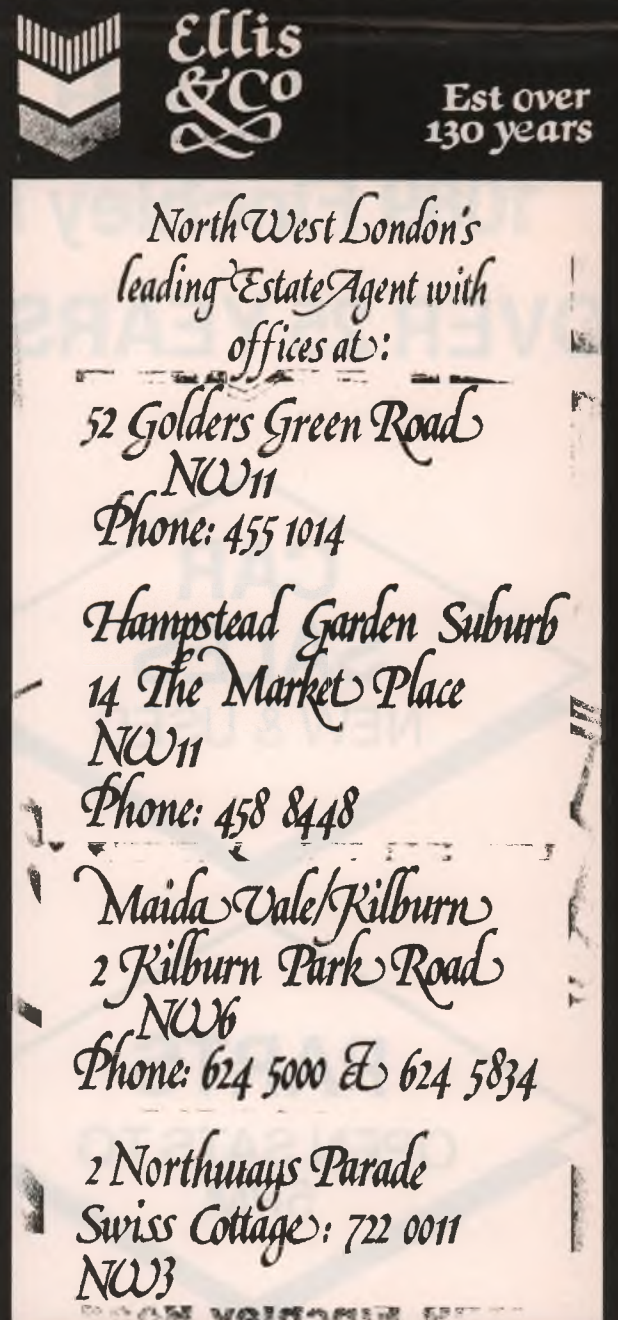 Ellis
&Co
Est over
130 years
North West London's
leading Estate Agent with
offices at:
52 Golders Green Road
NW11
Phone: 455 1014
Hampstead Garden Suburb
14 The Market Place
NW11
Phone: 458 8448
Maida Vale/Kilburn
2 Kilburn Park Road
NW6
Phone: 624 5000 & 624 5834
2 Northways Parade
Swiss Cottage: 722 0011
NW3